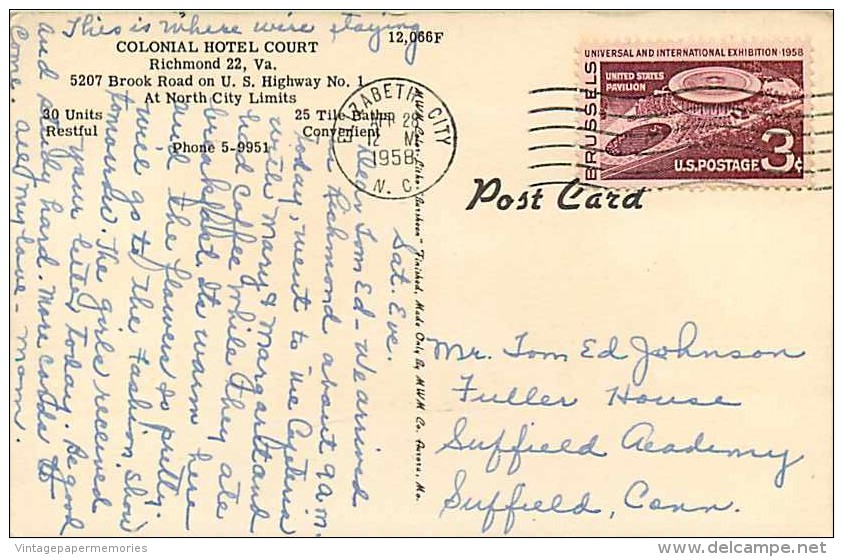 This is where we're staying
COLONIAL HOTEL COURT
Richmond 22, Va.
5207 Brook Road on U. S. Highway No. 1
At North City Limits
30 Units
25 Tile Baths
Restful
Convenient
Phone 5-9951
12,066F
Sat. Eve.
Dear Tom Ed - We arrived
in Richmond about 9 a.m.
today, went to the Cafeteria
with Mary & Margaret and
had coffee while they ate
breakfast. Its warm here
and the flowers so pretty.
We'll go to the Fashion Show
tomorrow. The girls received
your letter today. Be good
and study hard. More cards to
come. All my love - Mom.
"Finished, Made Only By M.W.M. Co. Aurora, Mo.
ELIZABETH CITY
12 M
1958
N. C.
UNIVERSAL AND INTERNATIONAL EXHIBITION·1958
BRUSSELS
UNITED STATES
PAVILION
U.S. POSTAGE 3¢
Post Card
Mr. Tom Ed Johnson
Fuller House
Suffield Academy
Suffield, Conn.
Vintagepapermemories
www.delcampe.net